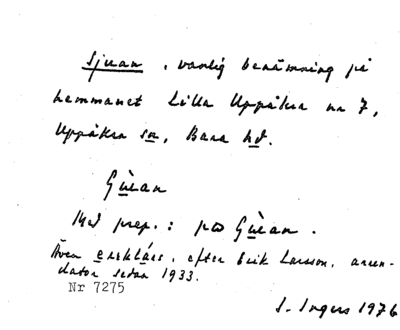 Sjuan, vanlig benämning på
hemmanet Lilla Uppåkra nr 7,
Uppåkra sn, Bara hd.
Med prep.: på
Även, efter Erik Larsson, arren-
dator sedan 1933.
Nr 7275
I. Ingers 1976